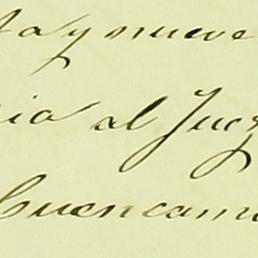 ta y nueve
cia al Juez
Cuencamé